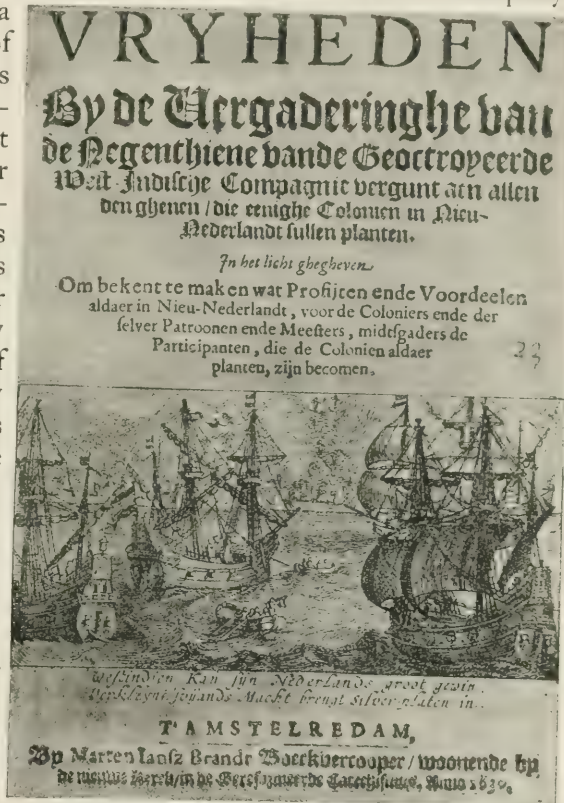 VRYHEDEN
By de Vergaderinghe van
de Negenthiene vande Geoctroyeerde
West-Indische Compagnie vergunt aen allen
den ghenen / die eenighe Colonien in Nieu-
Nederlandt sullen planten.
In het licht ghegheven
Om bekent te maken wat Profijten ende Voordeelen
aldaer in Nieu-Nederlandt, voor de Coloniers ende der
selver Patroonen ende Meesters, midtsgaders de
Participanten, die de Colonien aldaer
planten, zijn becomen.
Westindien Kan sijn Nederlands groot gewin
Verkleynt svijands Macht brengt silver platen in.
T'AMSTELREDAM,
By Marten Iansz Brandt Boeckvercooper / woonende by
de nieuwe Kerck / in de Gereformeerde Catechismus, Anno 1630.